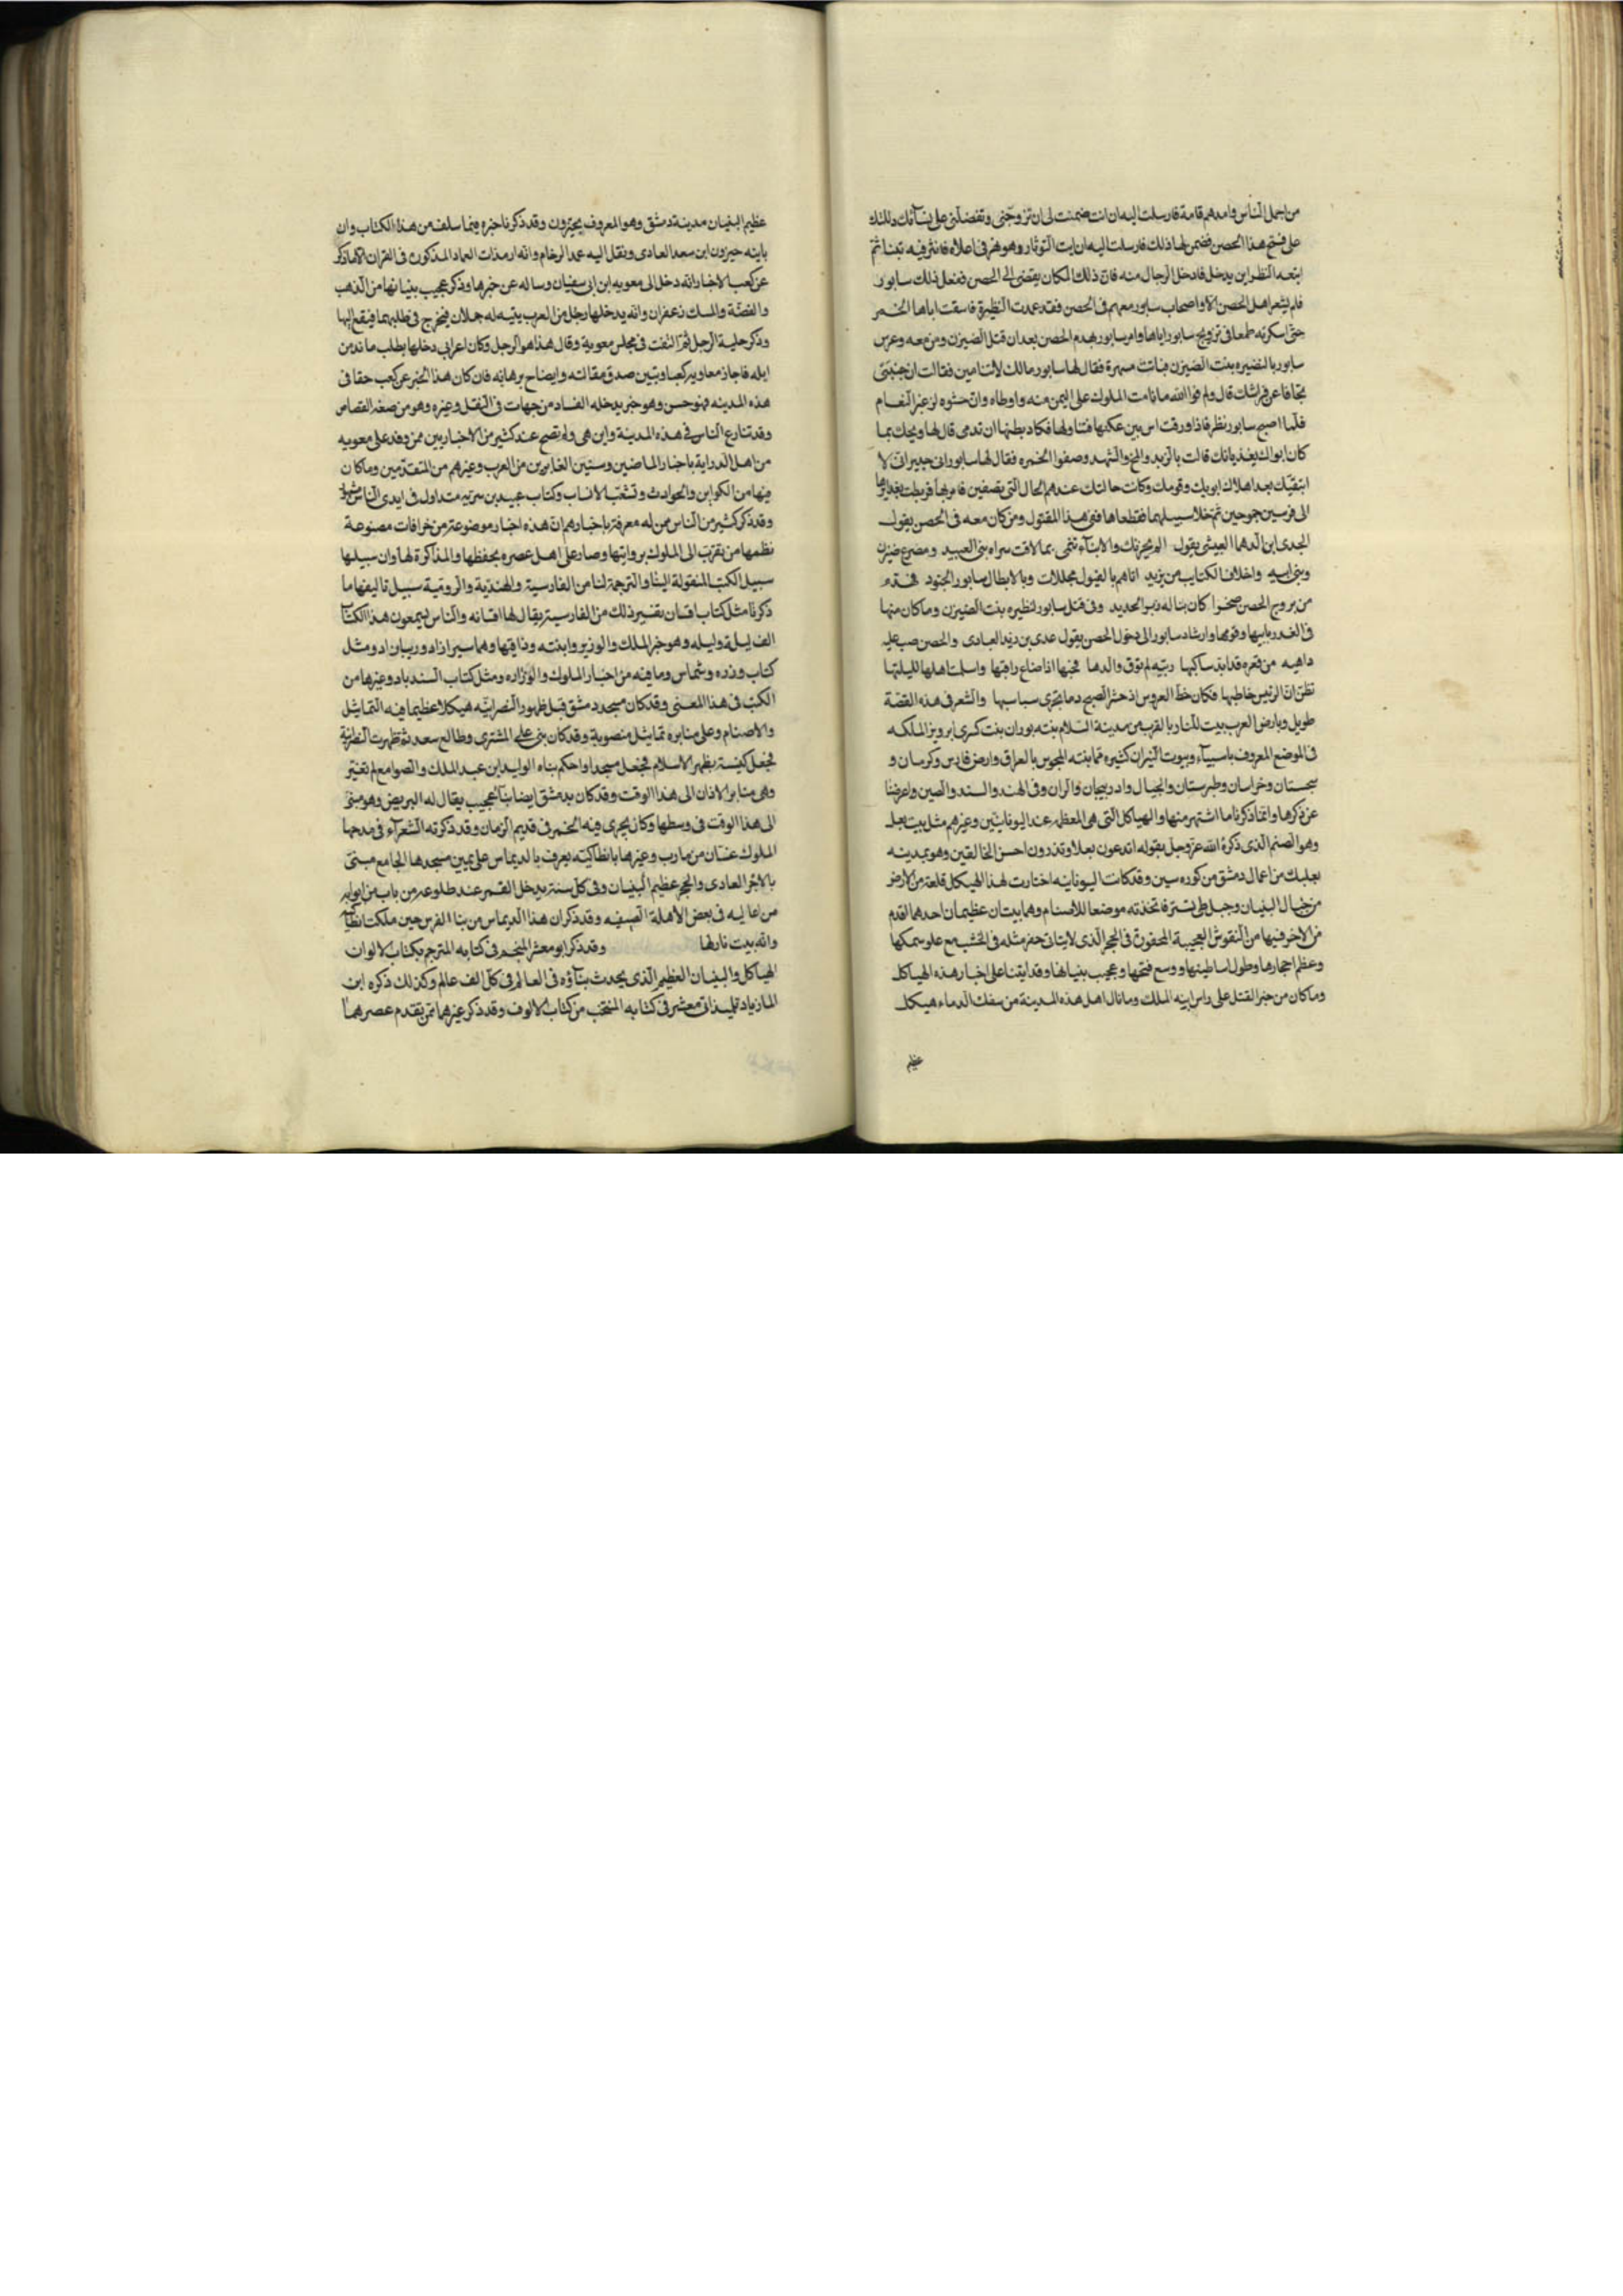 من اجمل الناس وامدهم قامة فارسلت اليه ان انت ضمنت لى ان تزوجنى وتفضلنى على نسآئك دللتك
على فتح هذا الحصن فضمن لها ذلك فارسلت اليه ان ايت الثوثار وهو نهر فى اعلاه فانثر فيه تبنا ثم
اتبعه انظر اين يدخل فادخل الرجال منه فان ذلك المكان يفضى الى الحصن ففعل ذلك سابور
فلم يشعر اهل الحصن الا واصحاب سابور معهم فى الحصن فقد عمدت النظيرة فاسقت اباها الخمر
حتى اسكرته طمعا فى تزويج سابور اياها وامر سابور بهدم الحصن بعد ان قتل الضيزن ومن معه وعرس
سابور بالنضيره بنت الضيزن فباتت مسهرة فقال لها سابور مالك لا تنامين فقالت ان جنبتى
تجافا عن فراشك قال ولم فوالله ما نامت الملوك على الين منه واوطاه وان حشوه لزغب النعام
فلما اصبح سابور نظر فاذا ورقت اس بين عكنها فتناولها فكاد بطنها ان تدمى قال لها ويحك بما
كان ابواك يغذيانك قالت بالزبد والمخ والشهد وصفوا الخمره فقال لها سابور انى جدير ان لا
ابقيك بعد اهلاك ابويك وقومك وكانت حالتك عندهم الحال التى تصفين فامر بها فربطت بغدايرها
الى فرسين جموحين ثم خلا سبيلهما فقطعاها ففى هذا المقتول ومن كان معه فى الحصن يقول
الجدى ابن الدهما العبشى يقول الم يحزنك والابنآء تنمى بما لاقت سراه بنى العبيد ومصرع ضيزن
وبنى ابيه واخلاف الكتايب من يزيد اتاهم بالفيول مجللات وبالابطال سابور الجنود فهدم
من بروج الحصن صخرا كان بناله زبر الحديد وفى قتل سابور لنظيره بنت الضيزن وما كان منها
فى الغدر بابيها وقومها وارشاد سابور الى دخول الحصن يقول عدى بن زيد العبادى والحصن صب عليه
داهيه من قعره قد ابد ساكنها ربيه لم توق والدها لحبها اذا ضاع راقبها واسلمت اهلها لليلتها
تظن ان الرئيس خاطبها فكان حظ العروس اذ حشر الصبح دما يجرى سباسبها والشعر فى هذه القصة
طويل وبارض العرب بيت للنار بالقرب من مدينة السلام بنته بوران بنت كسرى ابرويز الملكه
فى الموضع المعروف باسبيآء وبيوت النيران كثيره مما بنته المجوس بالعراق وارض فارس وكرمان و
سجستان وخراسان وطبرستان والجبال واذربيجان والران وفى الهند والسند والصين واعرضنا
عن ذكرها وانما ذكرنا ما اشتهر منها والهياكل التى هى المعظمه عند اليونانيين وغيرهم مثل بيت بعل
وهو الصنم الذى ذكره الله عز وجل بقوله اتدعون بعلا وتذرون احسن الخالقين وهو بمدينه
بعلبك من اعمال دمشق من كوره سين وقد كانت اليونانيه اختارت لهذا الهيكل قلعة من الارض
من جبال البنيان وجبل طى تستر فاتخذته موضعا للاصنام وهما بيتان عظيمان احدهما اقدم
من الاخر فيها من النقوش العجيبة المحفورة فى الحجر الذى لا يتاتى حفر مثله فى الخشب مع علو سمكها
وعظم احجارها وطول اساطينها ووسع فتحها وعجيب بنيانها وقد اتينا على اخبار هذه الهياكل
وما كان من خبر القتل على راس ابنه الملك وما نال اهل هذه المدينة من سفك الدماء هيكل
عظيم
عظيم البنيان مدينة دمشق وهو المعروف بجيرون وقد ذكرنا خبره فيما سلف من هذا الكتاب وان
بانيه جيرون ابن سعد العادى ونقل اليه عمد الرخام وانه ارم ذات العماد المذكورة فى القران الا ما ذكر
عن كعب الاخبار انه دخل الى معويه ابن ابى سفيان وساله عن خبرها وذكر عجيب بنيانها من الذهب
والفضة والمسك زعفران وانه يدخلها رجل من العرب يتيه له جملان فيخرج فى طلبهما فيقع اليها
وذكر حلية الرجل ثم التفت فى مجلس معوية وقال هذا هو الرجل وكان اعرابى دخلها يطلب ما ند من
ابله فاجاز معاويه كعبا وتبين صدق مقالته وايضاح برهانه فان كان هذا الخبر عن كعب حقا فى
هذه المدينه فهو حسن وهو خبر يدخله الفساد من جهات فى النقل وغيره وهو من صنعة القصاص
وقد تنازع الناس فى هذه المدينة واين هى ولم تصح عند كثير من الاخباريين ممن وفد على معويه
من اهل الدراية باخبار الماضين وسنين الغابرين من العرب وغيرهم من المتقدمين وما كان
فيها من الكواين والحوادث وتشعب الانساب وكتاب عبيد بن سريه متداول فى ايدى الناس مشهور
وقد ذكر كثير من الناس ممن له معرفة باخبارهم ان هذه اخبار موضوعة من خرافات مصنوعة
نظمها من تقرب الى الملوك بروايتها وصار على اهل عصره بحفظها والمذاكرة لها وان سبيلها
سبيل الكتب المنقولة الينا والترجمة لنا من الفارسية والهندية والروميّة سبيل تاليفها ما
ذكرنا مثل كتاب افسان تفسير ذلك من الفارسية يقال لها افسانه والناس يسمعون هذا الكتاب
الف ليلة وليله وهو خبر الملك والوزير وابنته ودايتها وهما سيرازاد وريبازاد ومثل
كتاب ورده وشماس وما فيه من اخبار الملوك والوزاره ومثل كتاب السندباد وغيرها من
الكتب فى هذا المعنى وقد كان مسجد دمشق قبل ظهور النصرانيّه هيكلا عظيما فيه التماثيل
والاصنام وعلى منابره تماثيل منصوبة وقد كان بنى على المشترى وطالع سعد ثم ظهرت النصرانية
فجعل كنيسة بظهر الاسلام فجعل مسجدا واحكم بناه الوليد ابن عبد الملك والصوامع لم تغير
وهى منابر الاذان الى هذا الوقت وقد كان بدمشق ايضا بنآ عجيب يقال له البريص وهو مبنى
الى هذا الوقت فى وسطها وكان يجرى فيه الخمر فى قديم الزمان وقد ذكرته الشعرآء فى مدحها
الملوك غسان من مارب وغيرها بانطاكيّه يعرف بالديماس على يمين مسجدها الجامع مبنى
بالاجر العادى والحجر عظيم البنيان وفى كل سنة يدخل القمر عند طلوعه من باب من ابوابه
من اعاليه فى بعض الاهلة الصيفيه وقد ذكر ان هذا الديماس من بنا الفرس حين ملكت انطاكيه
وانه بيت نار لها وقد ذكر ابو معشر المنجم فى كتابه المترجم بكتاب الالوان
الهياكل والبنيان العظيم الذى يحدث بنآؤه فى العالم فى كل الف عالم وكذلك ذكره ابن
المازياد تلميذ ابى معشر فى كتابه المنتخب من كتاب الالوف وقد ذكر غيرهما ممن تقدم عصرهما